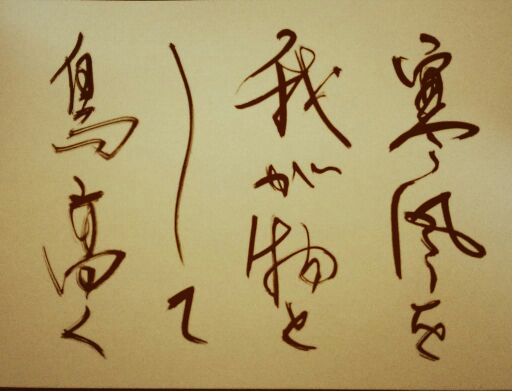 寒風を
我が物と
して
鳥高く